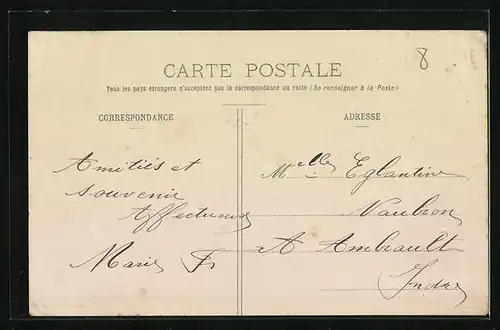 8
CARTE POSTALE
Tous les pays étrangers n'acceptent pas la correspondance au recto (Se renseigner à la Poste)
CORRESPONDANCE
ADRESSE
Amitiés et
souvenir
affectueux
Marie F
Melle Eglantine
Naubron
A Ambrault
Indre